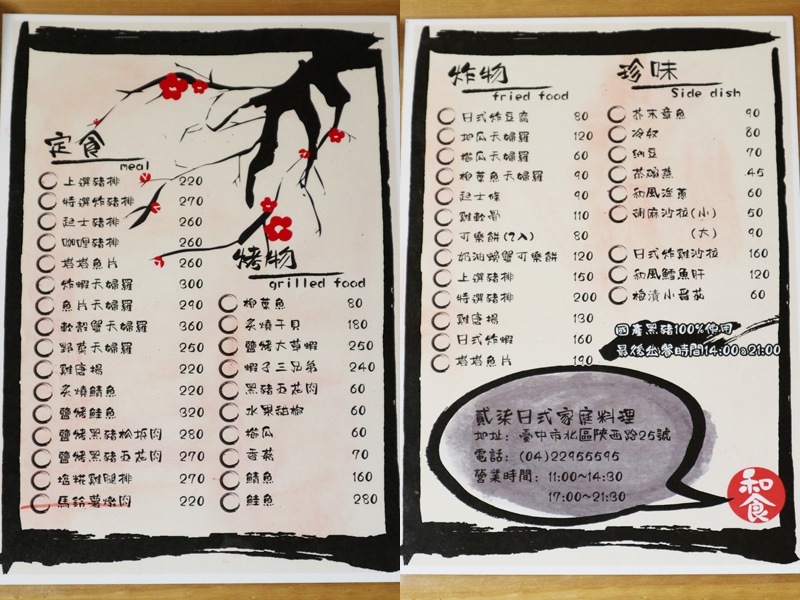 定食
meal
上選豬排 220
特選炸豬排 270
起士豬排 260
咖哩豬排 260
塔塔魚片 260
炸蝦天婦羅 300
魚片天婦羅 290
軟殼蟹天婦羅 360
野菜天婦羅 250
雞唐揚 220
炙燒鯖魚 220
鹽烤鮭魚 320
鹽烤黑豬松坂肉 280
鹽烤黑豬五花肉 270
塩糀雞腿排 270
馬鈴薯燉肉 220
烤物
grilled food
柳葉魚 80
炙燒干貝 180
鹽烤大草蝦 250
蝦子三兄弟 240
黑豬五花肉 60
水果甜椒 60
櫛瓜 60
香菇 70
鯖魚 160
鮭魚 280
炸物
fried food
日式炸豆腐 80
地瓜天婦羅 120
櫛瓜天婦羅 60
柳葉魚天婦羅 90
起士條 90
雞軟骨 110
可樂餅(2入) 80
奶油螃蟹可樂餅 120
上選豬排 150
特選豬排 200
雞唐揚 130
日式炸蝦 160
塔塔魚片 190
珍味
Side dish
芥末章魚 90
冷奴 80
納豆 70
茶碗蒸 45
和風洋蔥 60
胡麻沙拉(小) 50
(大) 90
日式炸雞沙拉 160
和風鱈魚肝 120
梅漬小番茄 60
國產黑豬100%使用
最後出餐時間14:00&21:00
貳柒日式家庭料理
地址: 臺中市北區陝西路25號
電話: (04)22955595
營業時間: 11:00~14:30
17:00~21:30
和食